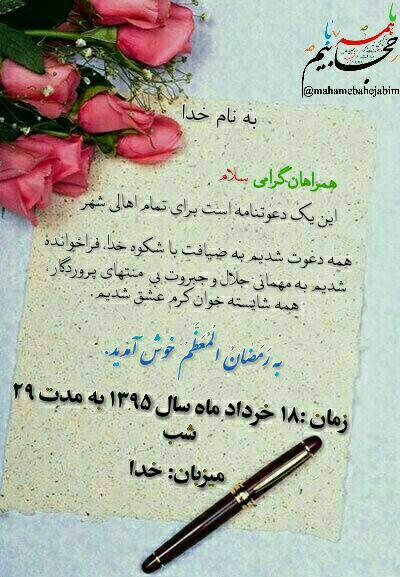 با
همه
با
حجابیم
@mahamebahejabim
به نام خدا
همراهان گرامی سلام
این یک دعوتنامه است برای تمام اهالی شهر
همه دعوت شدیم به ضیافت با شکوه خدا. فراخوانده
شدیم به مهمانی جلال و جبروت بی منتهای پروردگار.
همه شایسته خوان کرم عشق شدیم.
به رَمَضانُ الْمُعَظَّمْ خوش آمدید.
زمان :۱۸ خرداد ماه سال ۱۳۹۵ به مدت ۲۹
شب
میزبان: خدا